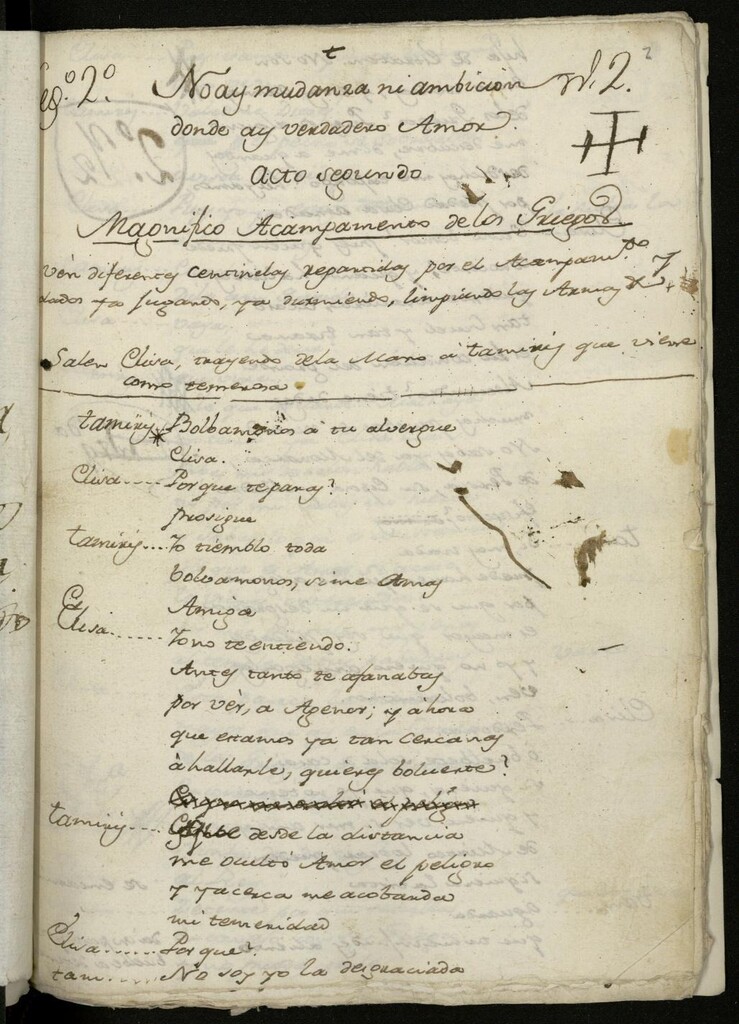 eg.º 2.º No ay mudanza ni ambicion nº. 2. 2
donde ay verdadero Amor.
Acto segundo
Magnifico Acampamento de los Griegos
Vén diferentes Centinelas repartidas por el Acampam.to
dados ya jugando, ya durmiendo, limpiando las Armas &
Salen Elisa, trayendo dela Mano á tamiris que viene
como temerosa
tamiris Bolbamonos á tu alvergue
Elisa.
Elisa.... Por que te paras?
prosigue
tamiris... Yo tiemblo toda
bolvamonos, si me Amas
Amiga
Elisa...... Yo no te entiendo.
Antes tanto te afanabas
por vér, a Agenor; y ahora
que estamos ya tan Cercanas
á hallarle, quieres bolverte?
tamiris.... desde la distancia
me ocultó Amor el peligro
y ya cerca me acobarda
mi temeridad
Elisa...... Por que?
tam...... No soy yo la desgraciada